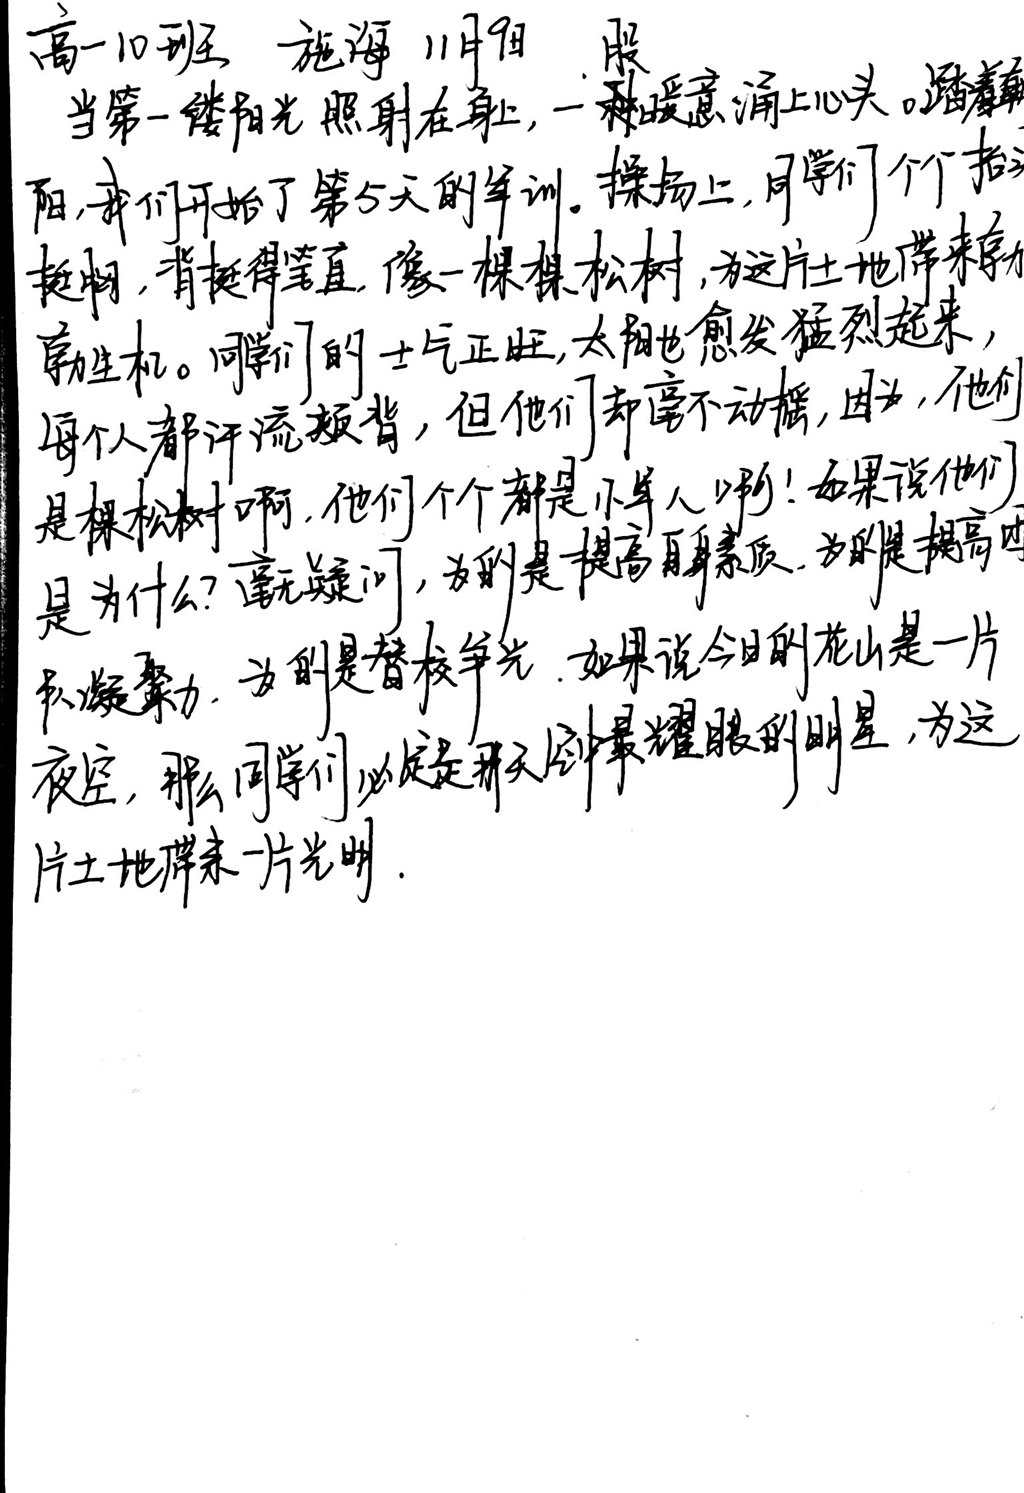 高一10班 施海 11月9日
股
当第一缕阳光照射在身上，一种暖意涌上心头。踏着朝
阳，我们开始了第5天的军训。操场上，同学们个个抬头
挺胸，背挺得笔直，像一棵棵松树，为这片土地带来勃
勃生机。同学们的士气正旺，太阳也愈发猛烈起来，
每个人都汗流颊背，但他们却毫不动摇，因为，他们
是棵松树啊，他们个个都是小军人哟！如果说他们
是为什么？毫无疑问，为的是提高自身素质，为的是提高
队凝聚力，为的是替校争光．如果说今日的花山是一片
夜空，那么同学们必定是那天空中最耀眼的明星，为这
片土地带来一片光明．